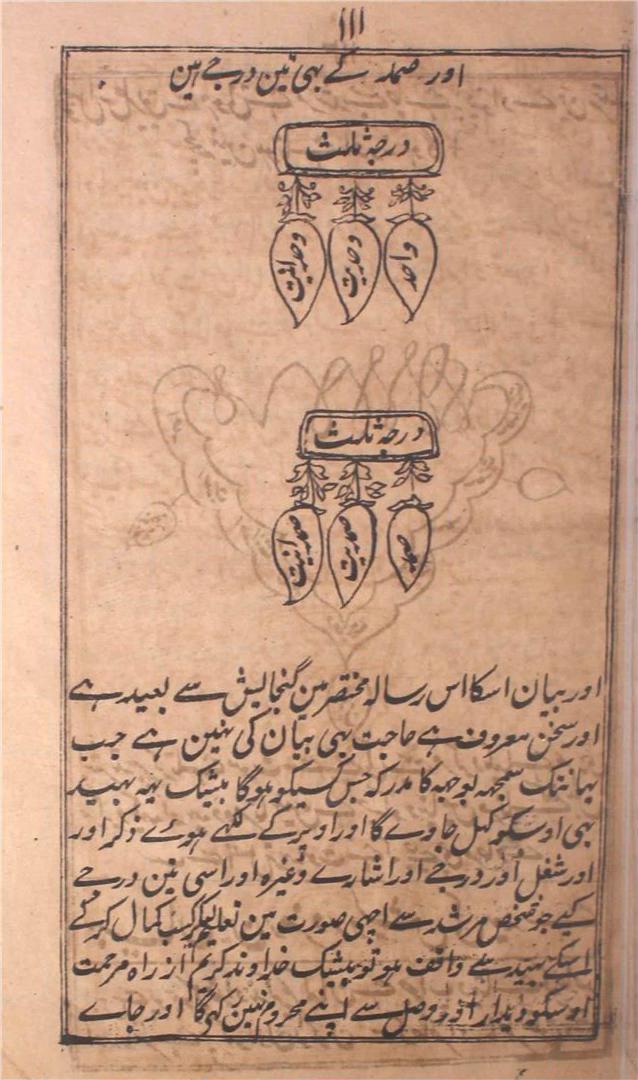 ۱۱۱
اور صمد کے بہی تین درجے ہین
درجۂ ثالث
واحد
وحدیت
وحدانیت
درجۂ ثالث
صمد
صمدیت
صمدانیت
اور بیان اسکا اس رسالہ مختصر مین گنجایش سے بعید ہے
اور سخن معروف ہے حاجت بہی بیان کی نہین ہے جب
یہانتک سمجہہ بوجہہ کا مدرکہ جس کسیکو ہوگا بیشک یہہ بہید
بہی اوسکو کہل جاوے گا اور اوپر کے لکہے ہوے ذکر اور
اور شغل اور درجے اور اشارے وغیرہ اور اسی تین درجے
کے جو شخص مرشد سے اچہی صورت مین تعالیم کسب کمال کرکے
اسکے بہید سے واقف ہو تو بیشک خداوند کریم از راہ مرحمت
اوسکو دیدار اور وصل سے اپنے محروم نہین رکہی گا اور جاے